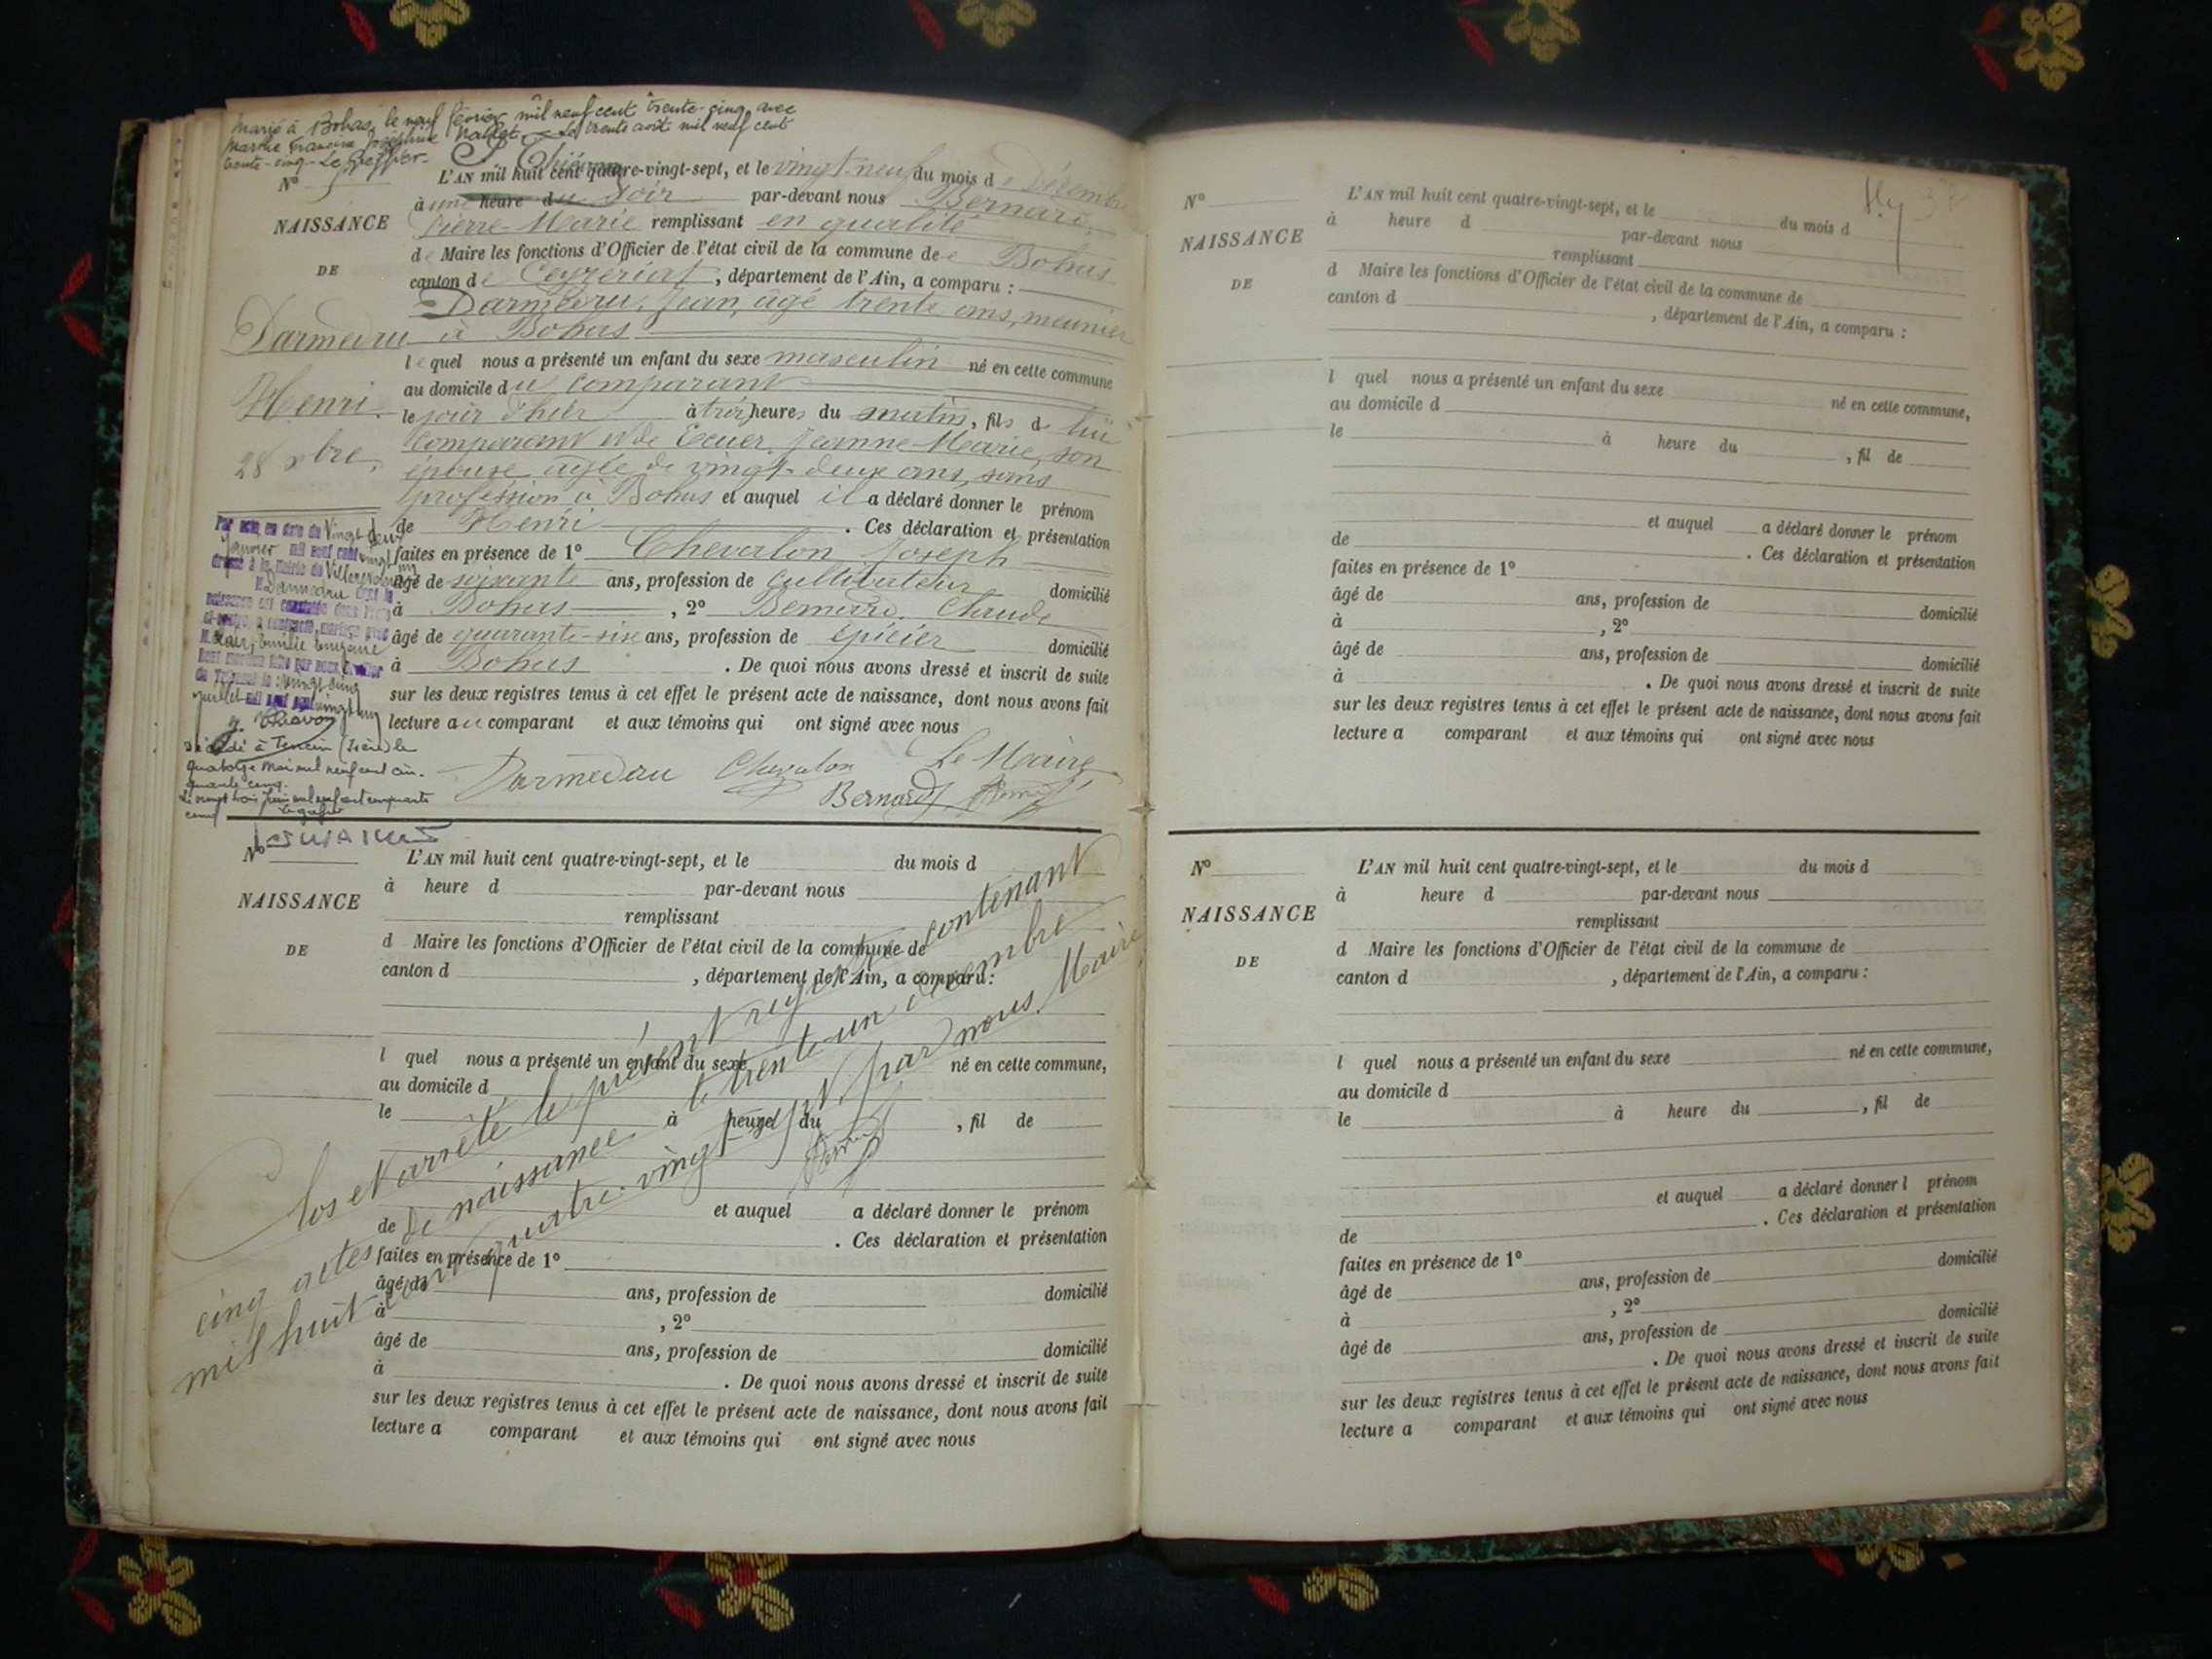 Marié à Bohas, le neuf février mil neuf cent trente-cinq, avec
Marie Francine Joséphine Le trente août mil neuf cent
trente-cinq. Le Greffier.
N° 5
NAISSANCE
DE
Darmedru
Henri.
28 xbre.
L'AN mil huit cent quatre-vingt-sept, et le vingt-neuf du mois de Décembre
à une heure du soir par-devant nous Bernard,
Pierre-Marie remplissant en qualité
de Maire les fonctions d'Officier de l'état civil de la commune de Bohas
canton de Ceyzeriat, département de l'Ain, a comparu :
Darmedru, Jean, âgé trente ans, meunier
à Bohas
lequel nous a présenté un enfant du sexe masculin né en cette commune
au domicile du comparant
le jour d'hier à trois heures du matin, fils de lui
comparant et de Ecuer, Jeanne-Marie, son
épouse âgée de vingt-deux ans, sans
profession à Bohas et auquel il a déclaré donner le prénom
de Henri . Ces déclaration et présentation
faites en présence de 1° Chevalon Joseph
âgé de soixante ans, profession de cultivateur domicilié
à Bohas , 2° Bernard, Claude
âgé de quarante-six ans, profession de épicier domicilié
à Bohas . De quoi nous avons dressé et inscrit de suite
sur les deux registres tenus à cet effet le présent acte de naissance, dont nous avons fait
lecture au comparant et aux témoins qui ont signé avec nous
Darmedru Chevalon Le Maire,
Bernard
Par acte, en date du Vingt deux
Janvier mil neuf cent vingt
dressé à la Mairie de
M. Darmedru dont la
naissance est constatée dans l'acte
ci-contre, a contracté mariage avec
M.
Dont mention faite par nous, Greffier
du Tribunal le vingt cinq
juillet mil neuf cent vingt
Décédé à Tencin (Isère) le
quatorze Mai mil neuf cent cin-
quante cinq.
Le vingt trois Juin mil neuf cent cinquante
cinq
N°
NAISSANCE
DE
L'AN mil huit cent quatre-vingt-sept, et le du mois d
à heure d par-devant nous
remplissant
d Maire les fonctions d'Officier de l'état civil de la commune de
canton d , département de l'Ain, a comparu :
l quel nous a présenté un enfant du sexe né en cette commune,
au domicile d
le à heure du , fil de
et auquel a déclaré donner le prénom
de . Ces déclaration et présentation
faites en présence de 1°
âgé de ans, profession de domicilié
à , 2°
âgé de ans, profession de domicilié
à . De quoi nous avons dressé et inscrit de suite
sur les deux registres tenus à cet effet le présent acte de naissance, dont nous avons fait
lecture a comparant et aux témoins qui ont signé avec nous
Clos et arrêté le présent registre contenant
cinq actes de naissance le trente-un décembre
mil huit cent quatre-vingt-sept, par nous, Maire
N°
NAISSANCE
DE
L'AN mil huit cent quatre-vingt-sept, et le du mois d
à heure d par-devant nous
remplissant
d Maire les fonctions d'Officier de l'état civil de la commune de
canton d , département de l'Ain, a comparu :
l quel nous a présenté un enfant du sexe né en cette commune,
au domicile d
le à heure du , fil de
et auquel a déclaré donner le prénom
de . Ces déclaration et présentation
faites en présence de 1°
âgé de ans, profession de domicilié
à , 2°
âgé de ans, profession de domicilié
à . De quoi nous avons dressé et inscrit de suite
sur les deux registres tenus à cet effet le présent acte de naissance, dont nous avons fait
lecture a comparant et aux témoins qui ont signé avec nous
N°
NAISSANCE
DE
L'AN mil huit cent quatre-vingt-sept, et le du mois d
à heure d par-devant nous
remplissant
d Maire les fonctions d'Officier de l'état civil de la commune de
canton d , département de l'Ain, a comparu :
l quel nous a présenté un enfant du sexe né en cette commune,
au domicile d
le à heure du , fil de
et auquel a déclaré donner l prénom
de . Ces déclaration et présentation
faites en présence de 1°
âgé de ans, profession de domicilié
à , 2°
âgé de ans, profession de domicilié
. De quoi nous avons dressé et inscrit de suite
sur les deux registres tenus à cet effet le présent acte de naissance, dont nous avons fait
lecture a comparant et aux témoins qui ont signé avec nous